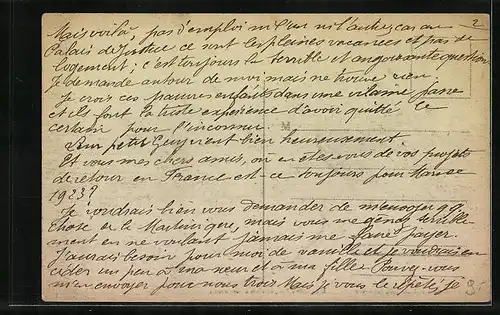 2
Mais voilà, pas d'emploi ni l'un ni l'autre, car au
Palais de Justice ce sont les pleines vacances et pas de
logement ; c'est toujours la terrible et angoissante question
Je demande autour de moi mais ne trouve rien.
Je crois ces pauvres enfants dans une vilaine passe
et ils font la triste expérience d'avoir quitté le
certain pour l'inconnu.
Leur petit vient bien heureusement.
Et vous mes chers amis, où en êtes vous de vos projets
de retour en France est-ce toujours pour
1923?
Je voudrais bien vous demander de m'envoyer qq
chose de la Martinique, mais vous me gênez terrible
ment en ne voulant jamais me faire payer.
J'aurais besoin pour moi de vanille et je voudrais en
céder un peu à ma sœur et à ma fille. Pouvez-vous
m'en envoyer pour nous trois Mais je vous le répète, je